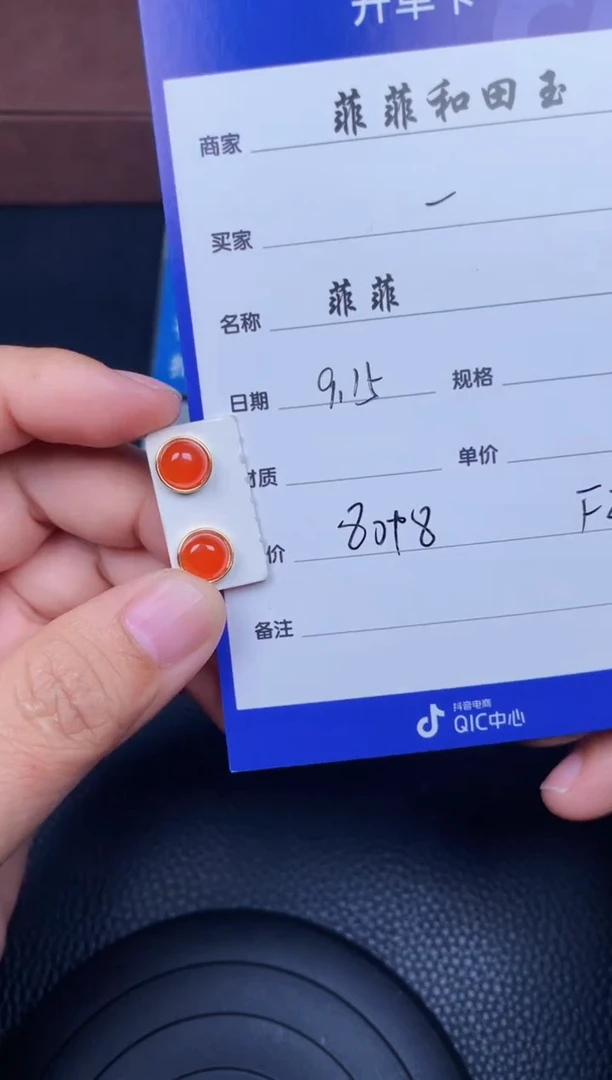 开单卡
商家 菲菲和田玉
买家 一
名称 菲菲
日期 9.15 规格
材质 单价
价 80+8 F
备注
抖音电商
QIC中心